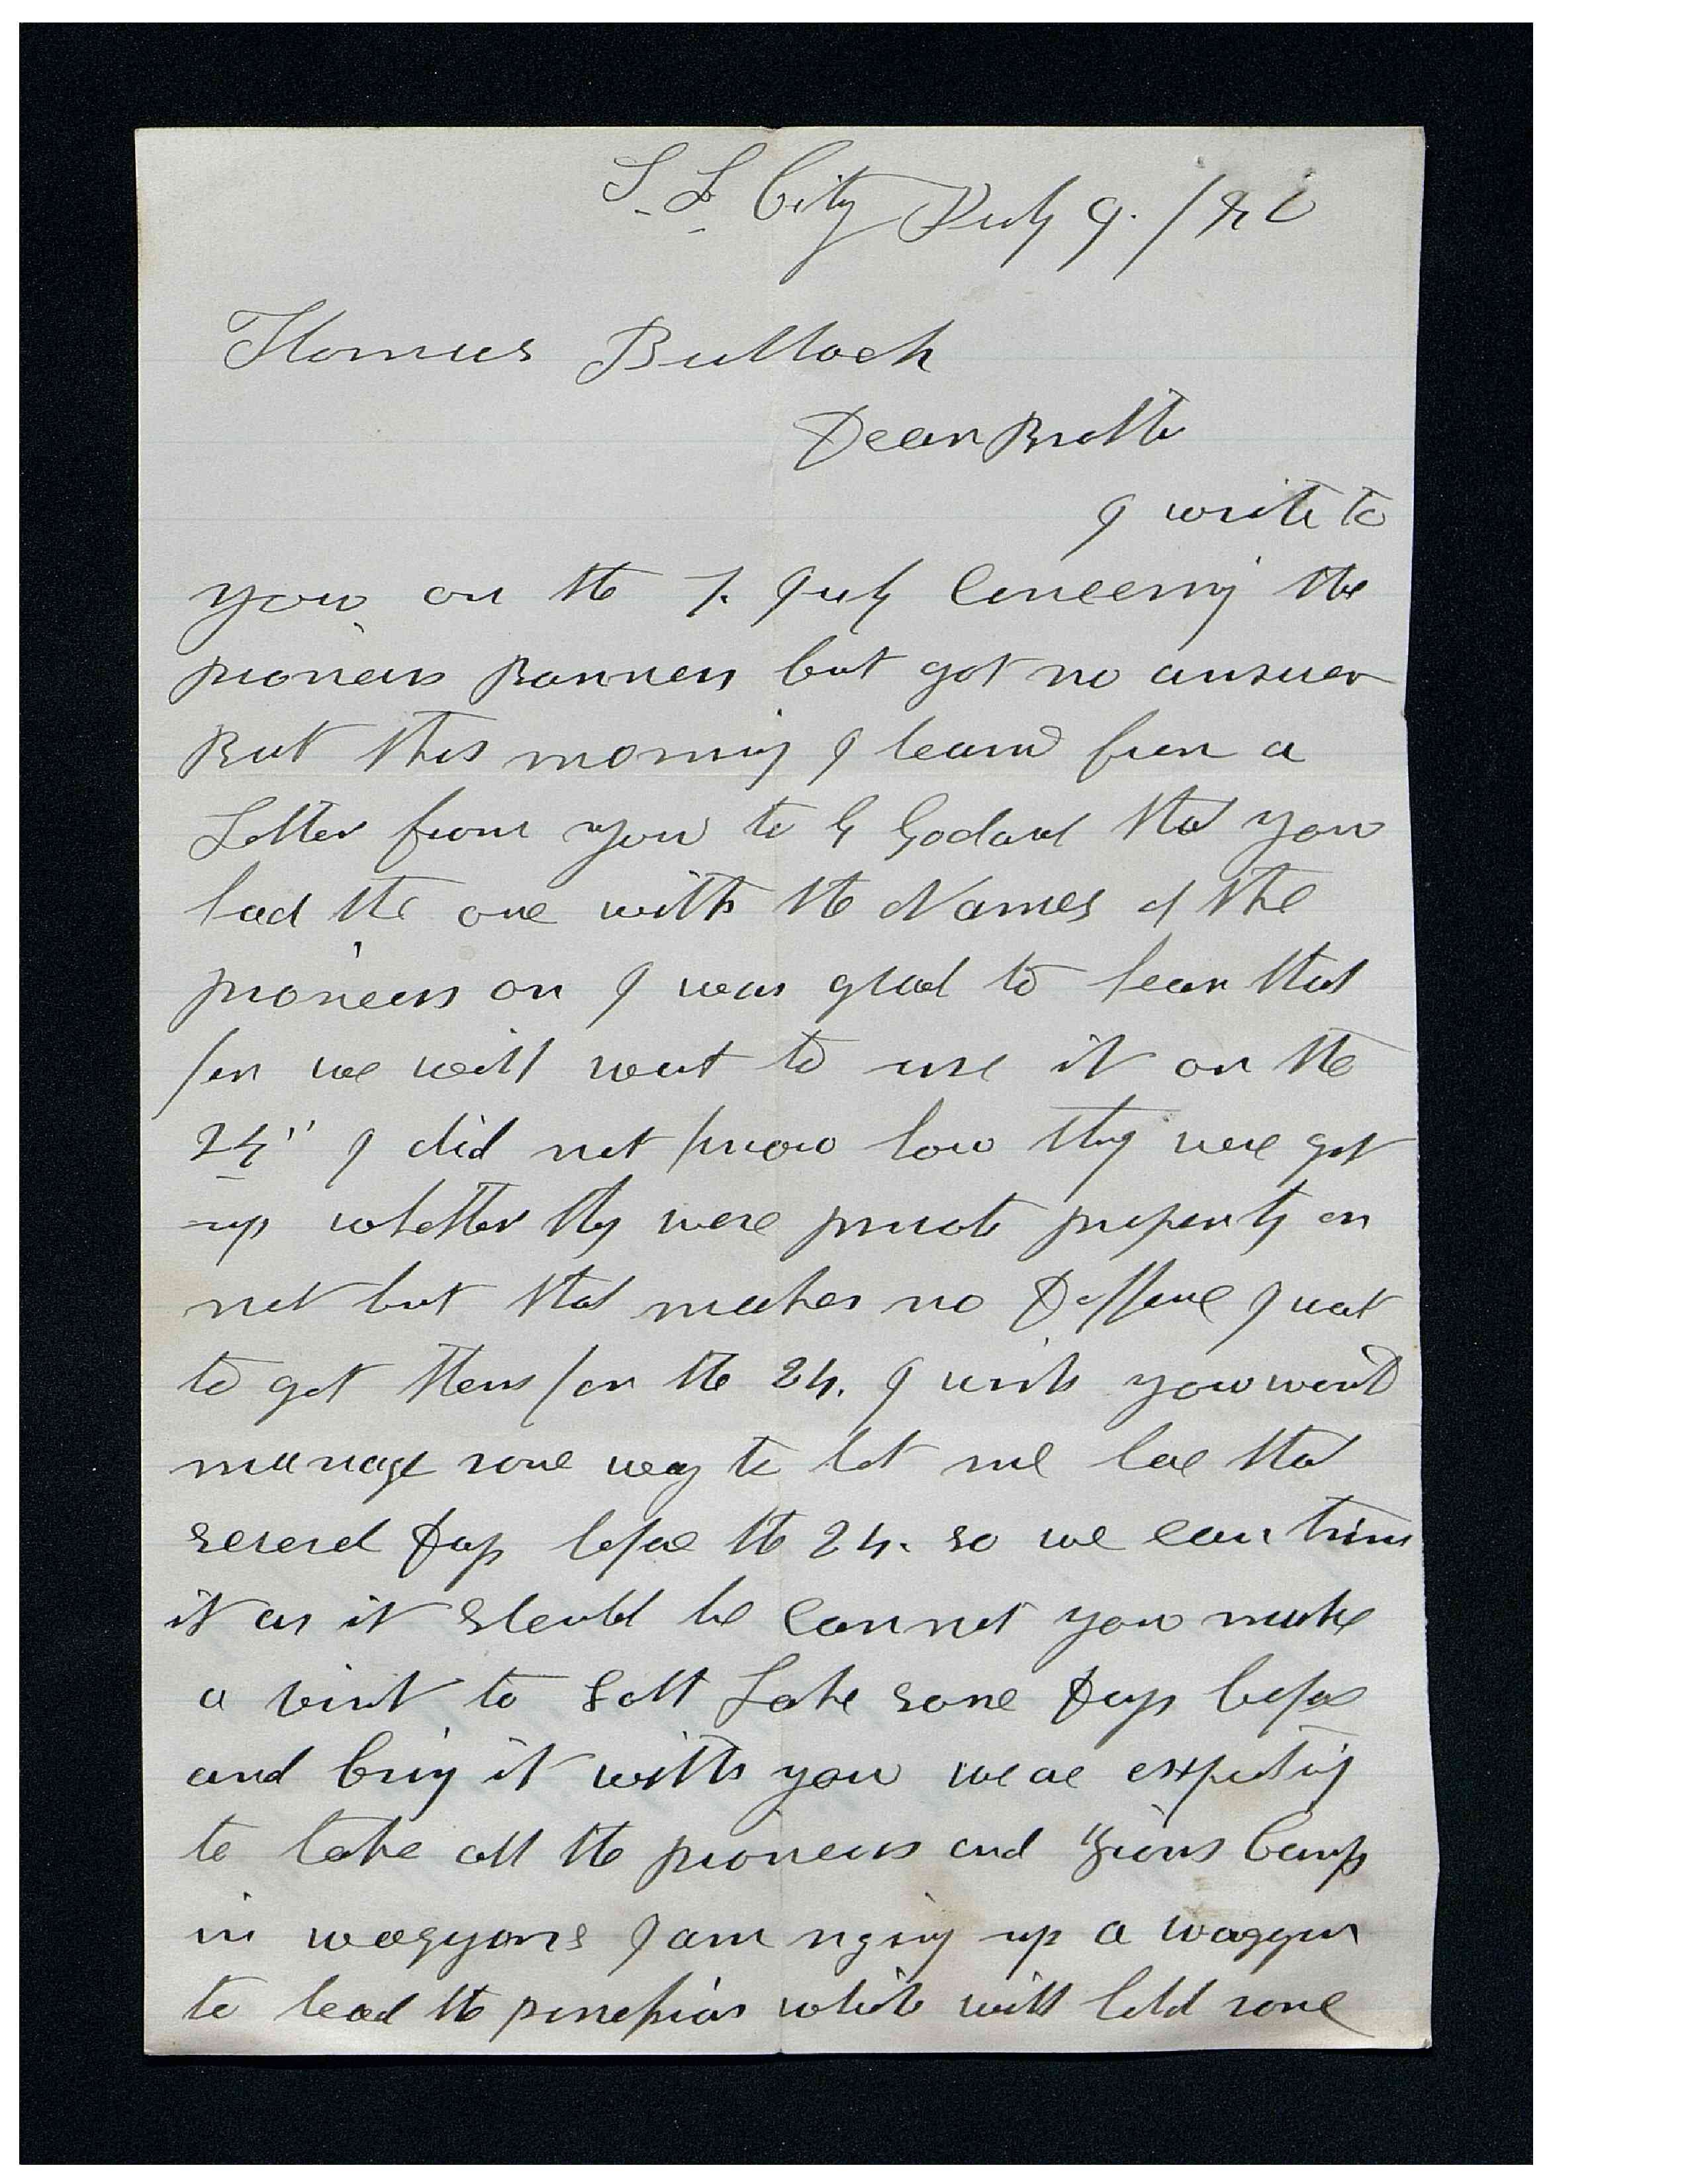 S. L. City July 9. /80
Thomas Bullock
Dear Brother
I write to
you on the 7. July Concerning the
pioneers Banners but got no answer
But this morning I learnd from a
Letter from you to G Godard that you
had the one with the Names of the
pioneers on I was glad to hear that
for we will want to use it on the
24" I did not know how they were got
up whether they were private property or
not but that makes no Difference I want
to get them for the 24. I wish you would
manage some way to let me have that
several Days before the 24. so we can trim
it as it should be Cannot you make
a visit to Salt Lake some Days before
and bring it with you we are expecting
to take all the pioneers and Zions Camp
in waggons I am riging up a waggon
to lead the procession which will hold some